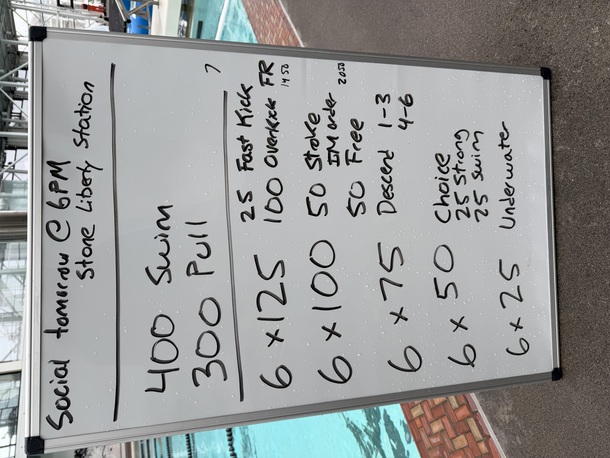 Social tomorrow @ 6PM
Stone Liberty Station
400 Swim
300 Pull
6 x 125 25 Fast Kick
100 Overkick FR
1450
6 x 100 50 Stroke
IM order
50 Free
2050
6 x 75 Descend 1-3
4-6
6 x 50 Choice
25 Strong
25 Swim
6 x 25 Underwater